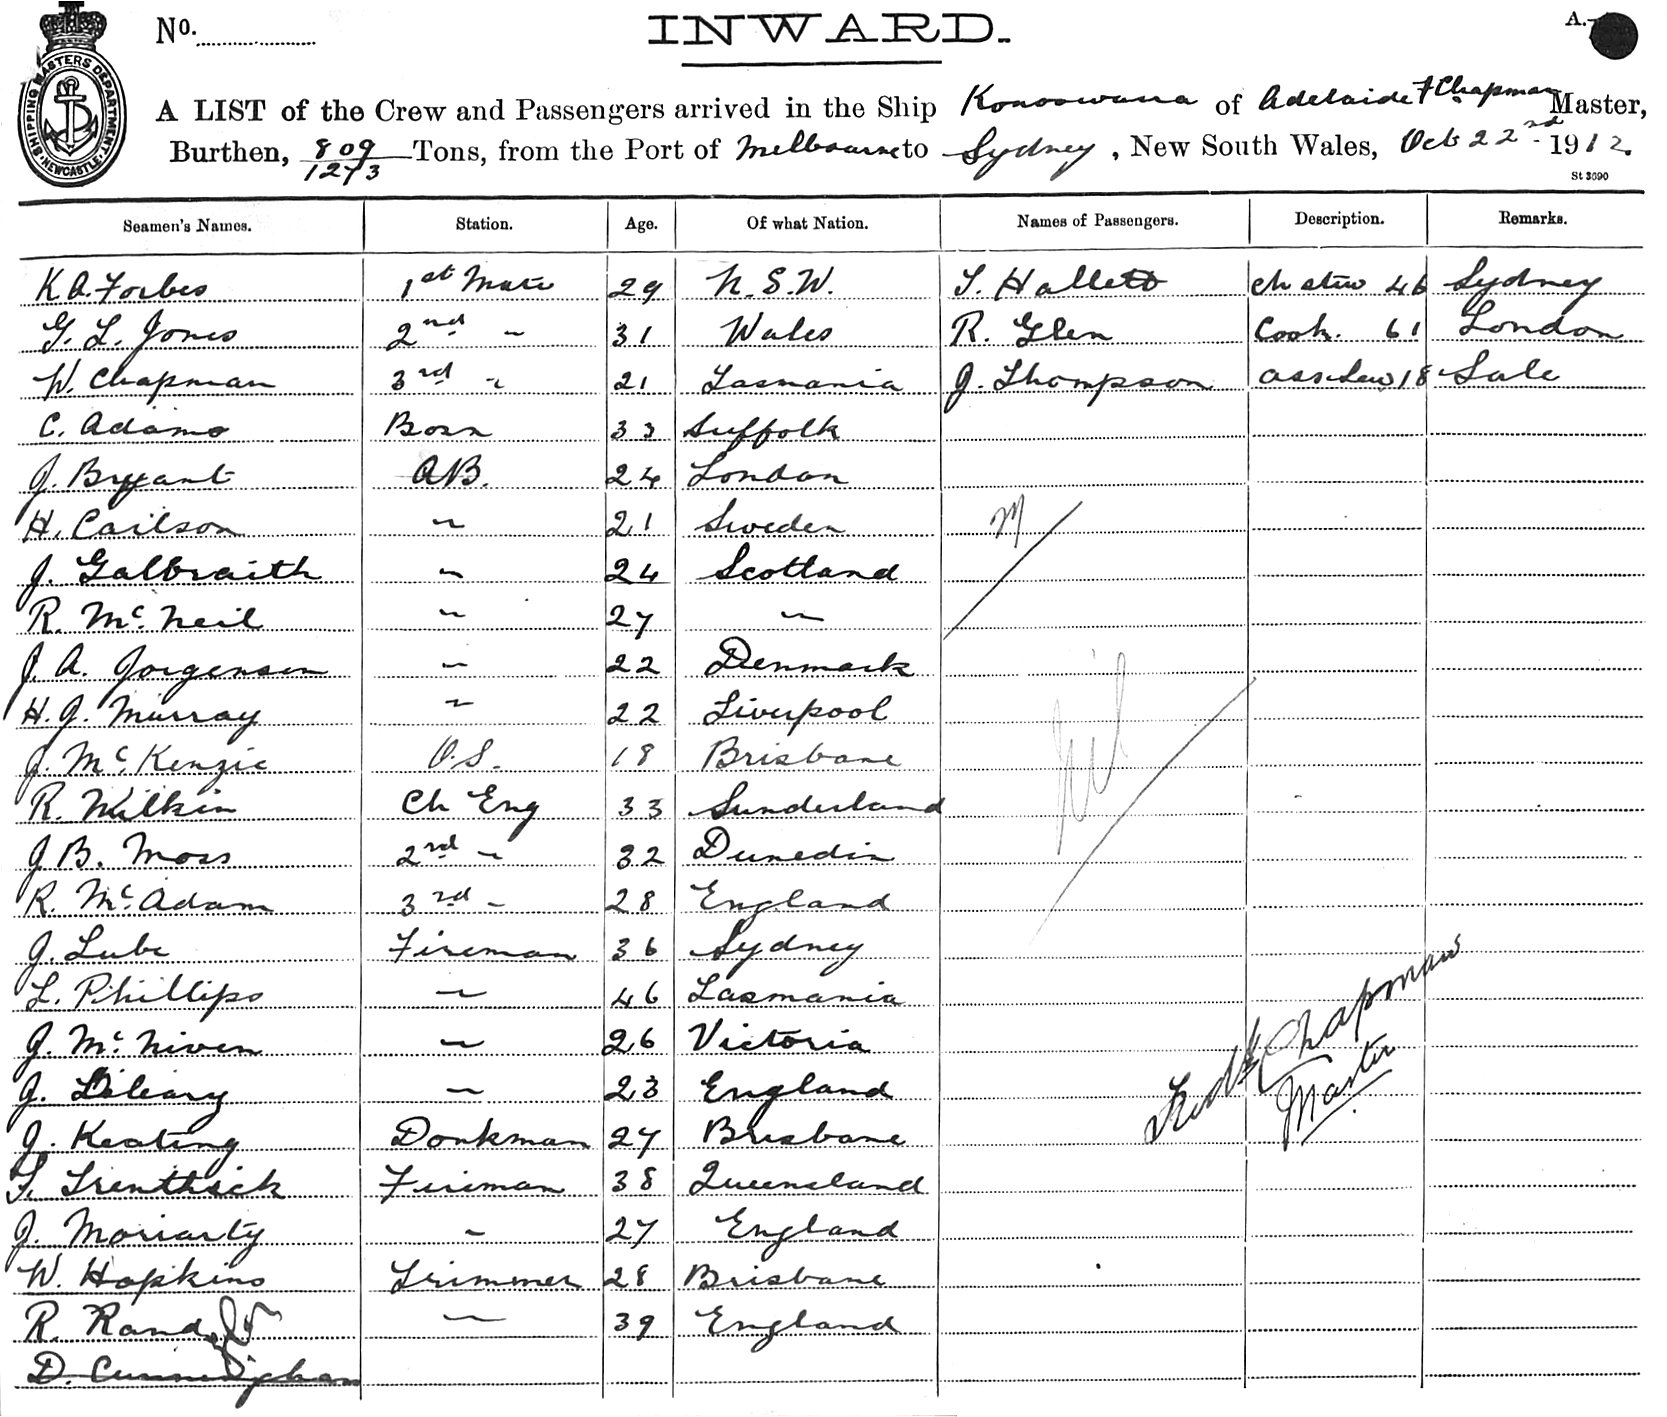 No. INWARD. A.
SHIPPING MASTERS DEPARTMENT. NEWCASTLE.
A LIST of the Crew and Passengers arrived in the Ship Konoowarra of Adelaide F Chapman Master,
Burthen, 809/1273 Tons, from the Port of Melbourne to Sydney, New South Wales, Oct 22nd - 1912.
St 3090
Seamen's Names. Station. Age. Of what Nation. Names of Passengers. Description. Remarks.
K A. Forbes 1st Mate 29 N.S.W. T. Hallett Ch stew 46 Sydney
G. L. Jones 2nd " 31 Wales R. Glen Cook. 61 London
W. Chapman 3rd " 21 Tasmania J. Thompson 18 Sale
C. Adams Bosn 33 Suffolk
J. Bryant A.B. 24 London
H. Carlson " 21 Sweden
J. Galbraith " 24 Scotland
R. Mc. Neil " 27 "
J. A. Jorgensen " 22 Denmark
H. J. Murray " 22 Liverpool
nil
J. Mc. Kenzie O.S. 18 Brisbane
R. Wilkin Ch Eng 33 Sunderland
J B. Moss 2nd " 32 Dunedin
R. Mc. Adam 3rd " 28 England
J. Lube Fireman 36 Sydney
L. Phillips " 46 Tasmania
J. Mc. Niven " 26 Victoria
J. " 23 England
Fredk Chapman
Master
J. Keating Donkman 27 Brisbane
T. Trenthick Fireman 38 Queensland
J. Moriarty " 27 England
W. Hopkins Trimmer 28 Brisbane
R. Rand " 39 England
D. Cunningham